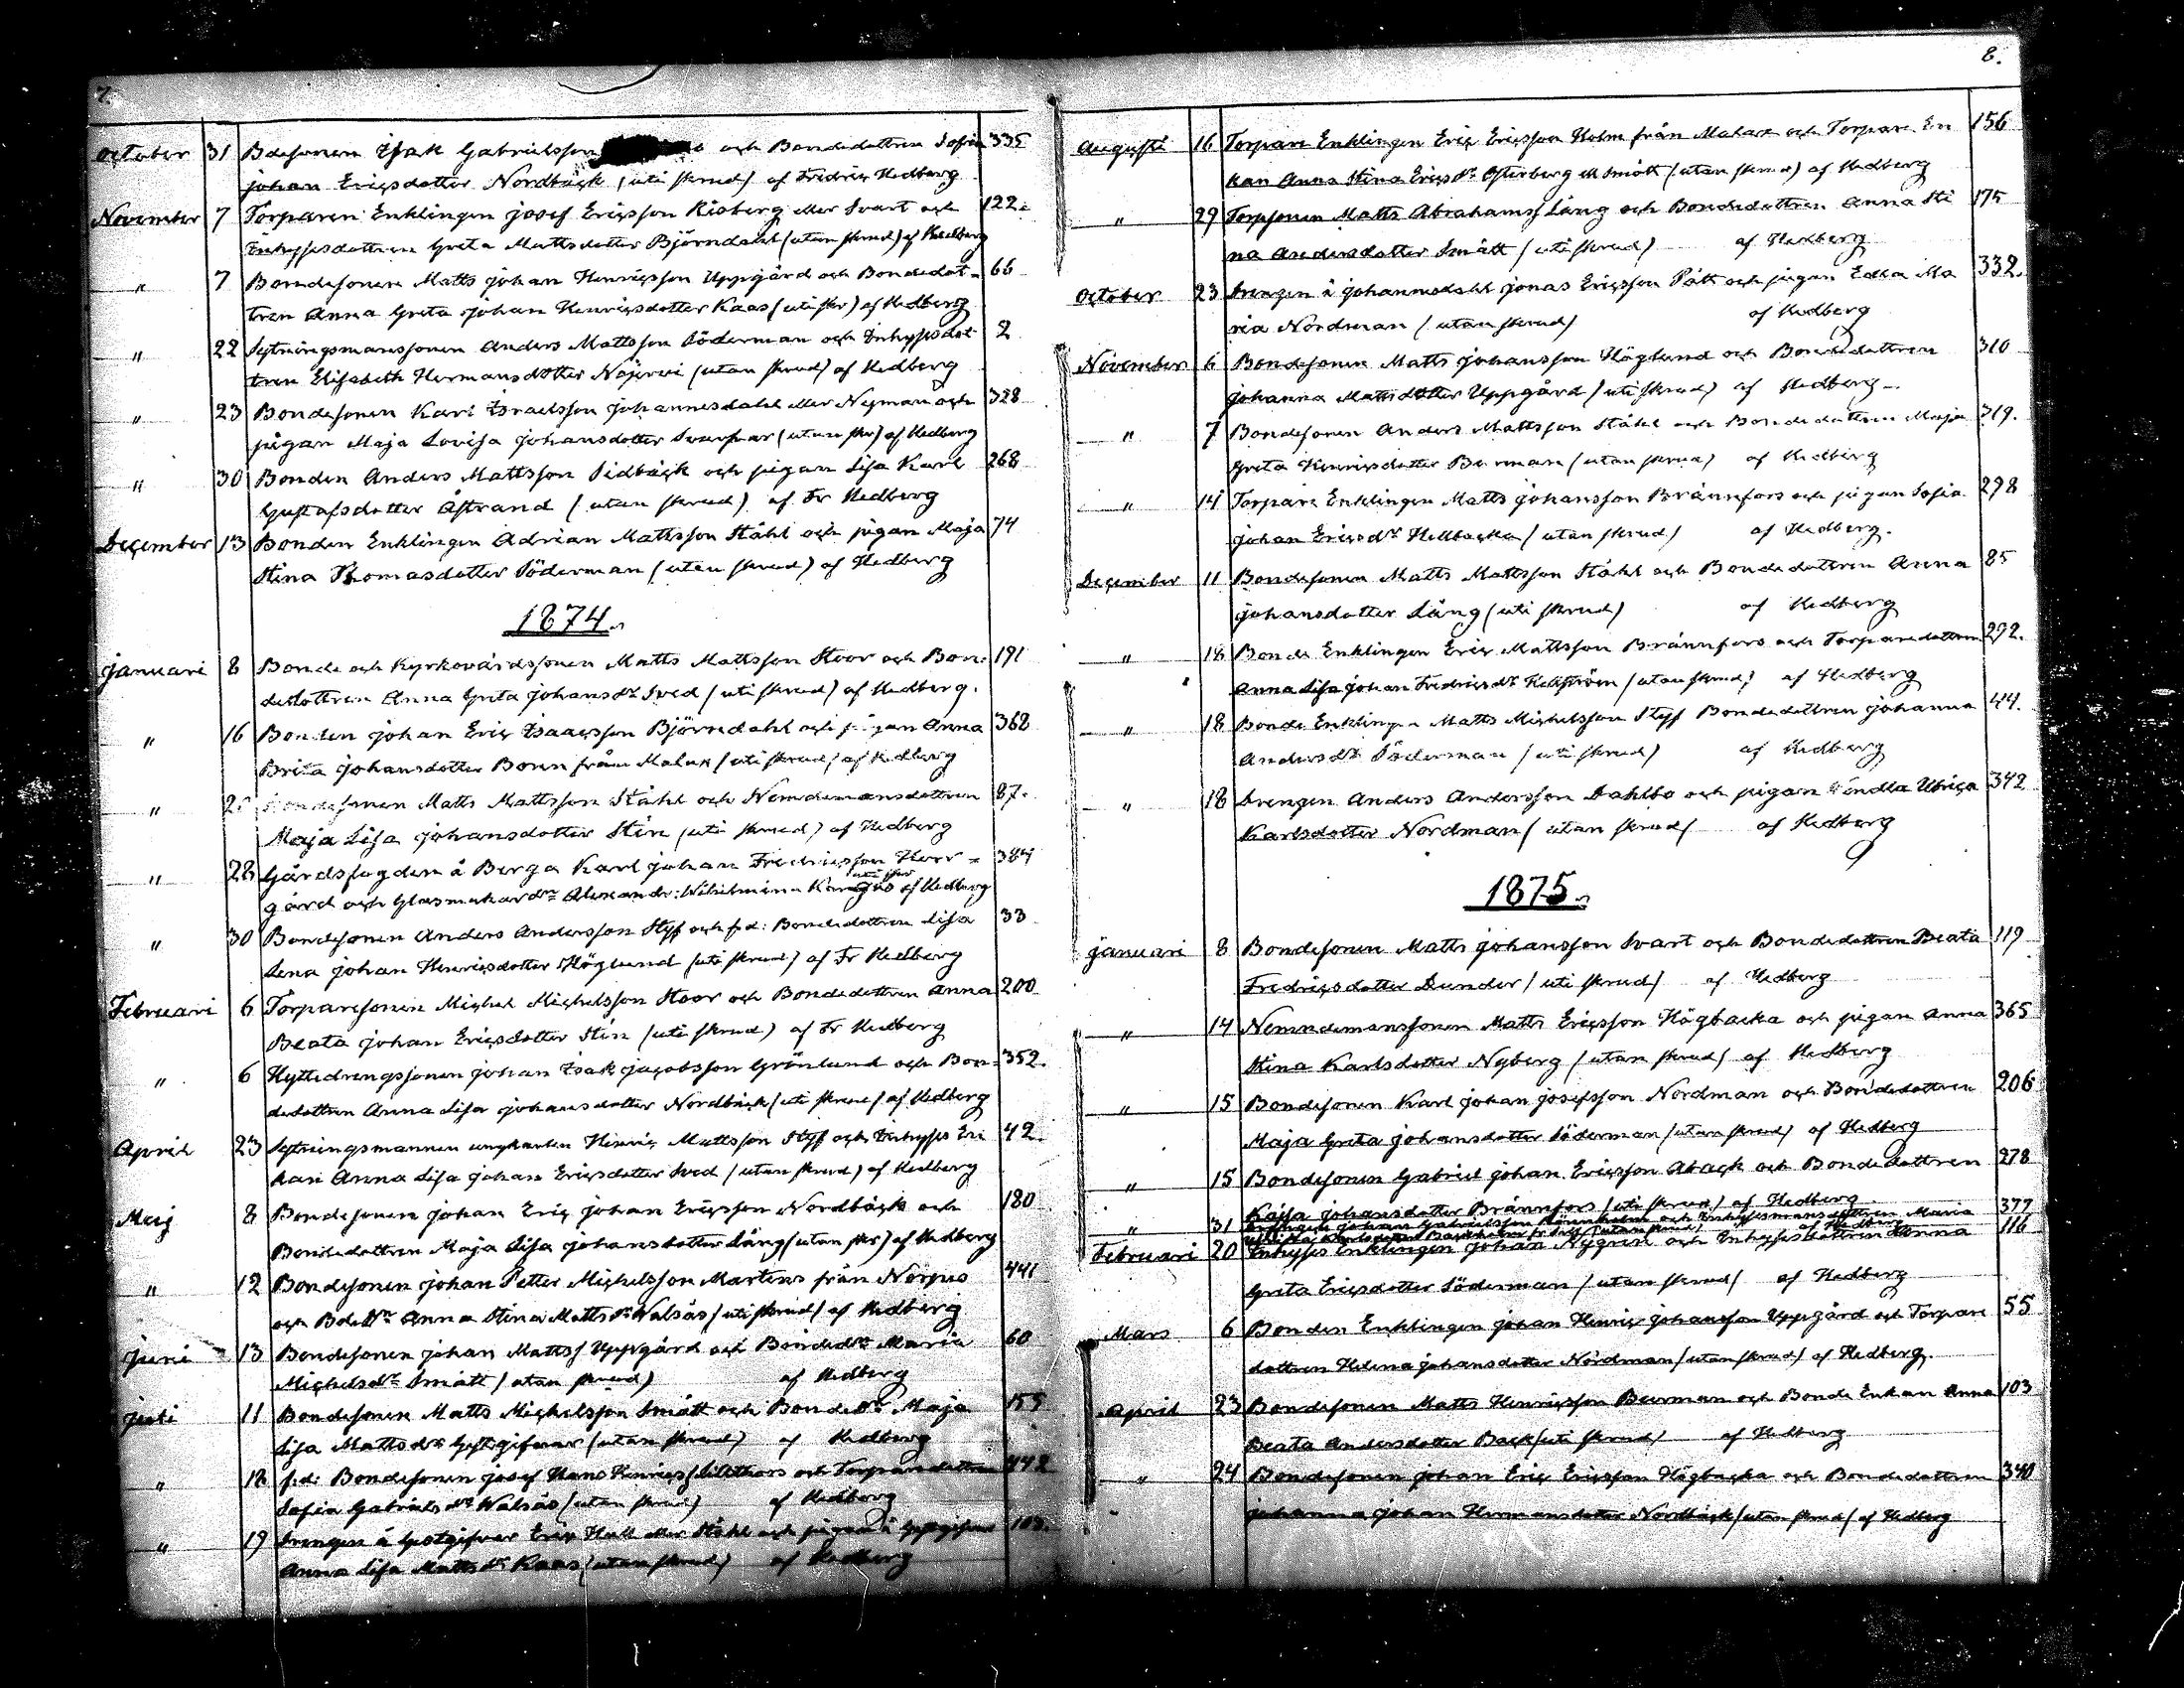 7.
October 31 Bdesonen Isak Gabrielsson och Bondedottren Sofia 335
Johan Ericsdotter Nordbäck (uti skrud) af Fredric Hedberg
November 7 Torparen Enklingen Josef Ericsson Risberg eller Svart och 122.
Inhyssesdottren Greta Mattsdotter Björndahl (utan skrud) af Hedberg
" 7 Bondesonen Matts Johan Henricsson Uppgård och Bondedot- 66
tren Anna Greta Johan Henricsdotter Kaas (uti skr) af Hedberg
" 22 Sytningsmanssonen Anders Mattsson Söderman och Inhysesdot- 2
tren Elisabeth Hermansdotter Näjervi (utan skrud) af Hedberg
" 23 Bondesonen Karl Israelsson Johannesdahl eller Nyman och 328
pigan Maja Lovisa Johansdotter Svarfvar (utan skr) af Hedberg
" 30 Bonden Anders Mattsson Sidbäck och pigan Lisa Karl 268
Gustafsdotter Åstrand (utan skrud) af Fr Hedberg
December 13 Bonden Enklingen Adrian Mattsson Ståhl och pigan Maja 74
Stina Thomasdotter Söderman (utan skrud) af Hedberg
1874.
Januari 8 Bonde och Kyrkovärdssonen Matts Mattsson Stoor och Bon- 191
dedottren Anna Greta Johansdr Sved (uti skrud) af Hedberg.
" 16 Bonden Johan Eric Isaacsson Björndahl och pigan Anna 368
Brita Johansdotter Boren från Malax (uti skrud) af Hedberg
" Bondesonen Matts Mattsson Ståhl och Nemdemansdottren 87.
Maja Lisa Johansdotter Stén (uti skrud) af Hedberg
" 28 Gårdsfogden å Berga Karl Johan Fredricsson Herr- 384
gård och Glasmakardr Alexandr: Wilhelmina uti skr af Hedberg
" 30 Bondesonen Anders Andersson Styf och f.d: Bondedottren Lisa 33
Lena Johan Henricsdotter Höglund (uti skrud) af Fr Hedberg
Februari 6 Torparesonen Michel Michelsson Stoor och Bondedottren Anna 200
Beata Johan Ericsdotter Stén (uti skrud) af Fr Hedberg
" 6 Hyttedrengssonen Johan Isak Jacobsson Grönlund och Bon- 352.
dedottren Anna Lisa Johansdotter Nordbäck (uti skrud) af Hedberg
April 23 Sytningsmannen ungkarlen Hinric Mattsson Styf och Inhyses En 42.
kan Anna Lisa Johan Ericsdotter Sved (utan skrud) af Hedberg
Maij 8 Bondesonen Johan Eric Johan Ericsson Nordbäck och 180
Bondedottren Maja Lisa Johansdotter Lång (utan skr) af Hedberg
" 12 Bondesonen Johan Petter Michelsson Martens från Norpus 441
och Bdedtr Anna Stina Mattsdr Walsås (uti skrud) af Hedberg
Juni 13 Bondesonen Johan Matts Uppgård och Bondedtr Maria 60
Michelsdr Smått (utan skrud) af Hedberg
Juli 11 Bondesonen Matts Michelsson Smått och Bondedtr Maja 155
Lisa Mattsdr Gästgifvar (utan skrud) af Hedberg
" 18 f:d: Bondesonen Josef Hans Henrics Lillthors och Torparedottren 442
Sofia Gabrielsdr Walsås (utan skrud) af Hedberg
" 19 Drengen å Gästgifvar Eric Hall eller Ståhl och pigan å Gästgifvar 103.
Anna Lisa Mattsdr Kaas (utan skrud) af Hedberg
8.
Augusti 16 Torpare Enklingen Eric Ericsson Holm från Malax och Torpare En 156
kan Anna Stina Ericsdr Österberg ell Smått (utan skrud) af Hedberg
" 29 Torpsonen Matts Abrahams Lång och Bondedottren Anna Sti 175
na Andersdotter Smått (uti skrud) af Hedberg
October 23 Drengen å Johannesdahl Jonas Ericsson Pått och pigan Edla Ma 332.
ria Nordman (utan skrud) af Hedberg
November 6 Bondesonen Matts Johansson Höglund och Bondedottren 310
Johanna Mattsdotter Uppgård (uti skrud) af Hedberg
" 7 Bondesonen Anders Mattsson Ståhl och Bondedottren Maja 319.
Greta Henricsdotter Burman (utan skrud) af Hedberg
" 14 Torpare Enklingen Matts Johansson Brännfors och pigan Sofia 298
Johan Ericsdr Hellbacka (utan skrud) af Hedberg.
December 11 Bondesonen Matts Mattsson Ståhl och Bondedottren Anna 85
Johansdotter Lång (uti skrud) af Hedberg
" 18 Bonde Enklingen Eric Mattsson Brännfors och Torparedottren 292.
Anna Lisa Johan Fredricsdr Hellström (utan skrud) af Hedberg
" 18 Bonde Enklingen Matts Michelsson Styf Bondedottren Johanna 44.
Andersdr Söderman (uti skrud) af Hedberg
" 18 Drengen Anders Andersson Dahlbo och pigan Wendla Ulrica 342
Karlsdotter Nordman (utan skrud) af Hedberg
1875.
Januari 8 Bondesonen Matts Johansson Svart och Bondedottren Beata 119
Fredricsdotter Dunder (uti skrud) af Hedberg
" 14 Nemndemanssonen Matts Ericsson Högbacka och pigan Anna 365
Stina Karlsdotter Nyberg (utan skrud) af Hedberg
" 15 Bondesonen Karl Johan Josefsson Nordman och Bondedottren 206
Maja Greta Johansdotter Söderman (utan skrud) af Hedberg
" 15 Bondesonen Gabriel Johan Ericsson Aback och Bondedottren 278
Kajsa Johansdotter Brännfors (uti skrud) af Hedberg
" 31 Drengen Johan Gabrielsson och Inhysesmansdottren Maria 377
Karlsdotter (utan skrud) af Hedberg
Februari 20 Inhyses Enklingen Johan Nygren och Inhysesdottren Anna 116
Greta Ericsdotter Söderman (utan skrud) af Hedberg
Mars 6 Bonden Enklingen Johan Henric Johansson Uppgård och Torpare 55
dottren Helena Johansdotter Nordman (utan skrud) af Hedberg.
April 23 Bondesonen Matts Henricsson Buurman och Bonde Enkan Anna 103
Beata Andersdotter Back (uti skrud) af Hedberg
" 24 Bondesonen Johan Eric Ericsson Högbacka och Bondedottren 340
Johanna Johan Hermansdotter Nordbäck (utan skrud) af Hedberg